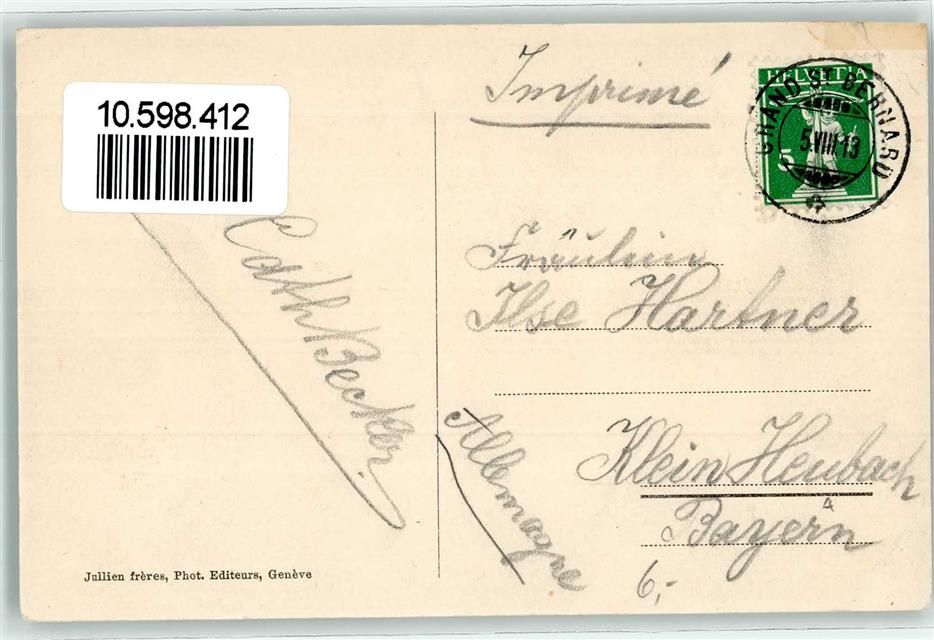 10.598.412
Imprimé
HELVETIA
5
GRAND ST BERNARD
5.VIII.13
Fräulein
Ilse Hartner
Klein Heubach
a
Bayern
Allemagne
6,-
Cath Becker
Jullien frères, Phot. Editeurs, Genève